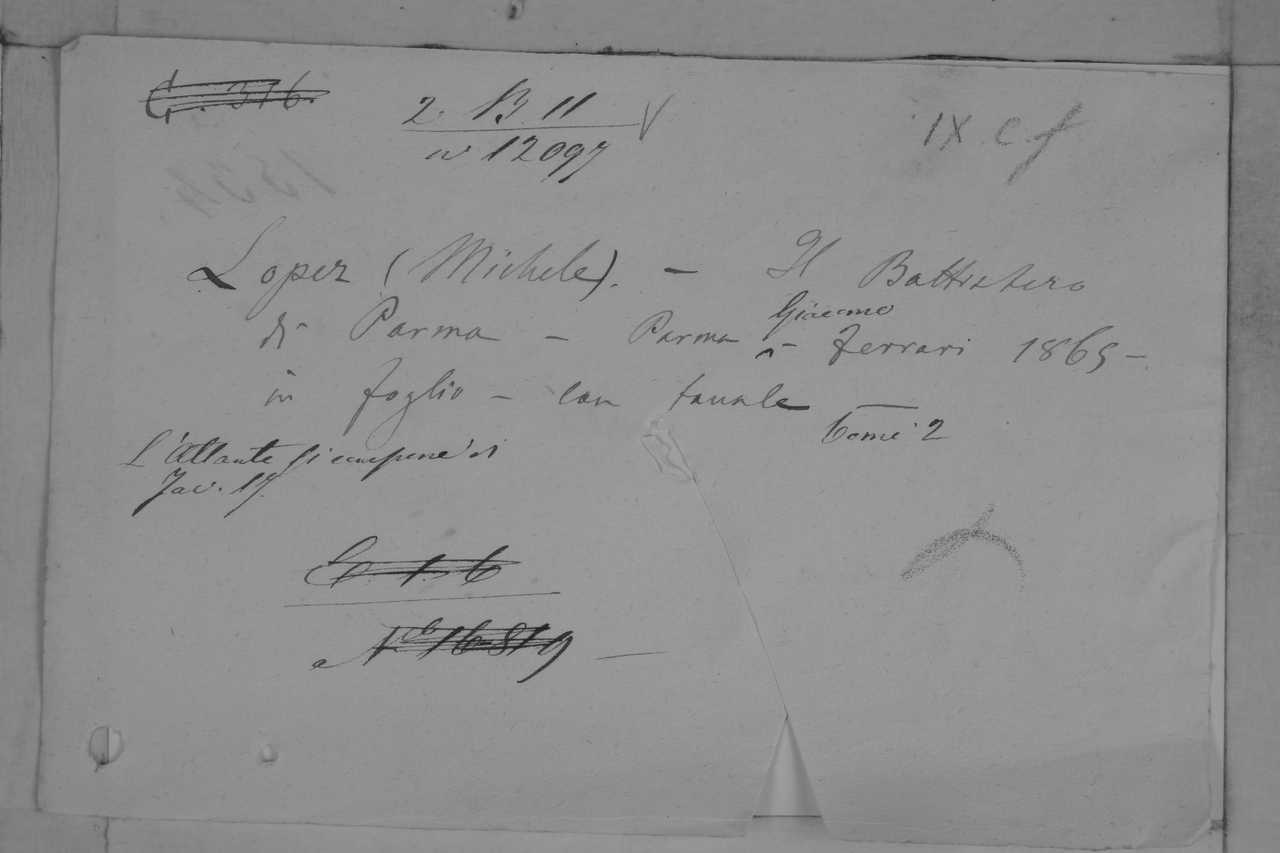 G. 376.
2. B 11 V
n° 12097
IX C f
Lopez (Michele). — Il Battistero
di Parma — Parma - Giacomo Ferrari 1865 —
in foglio — con tavole
Tomi 2
L'Atlante si compone di
Tav. 17.
1 6
N° 16819 —